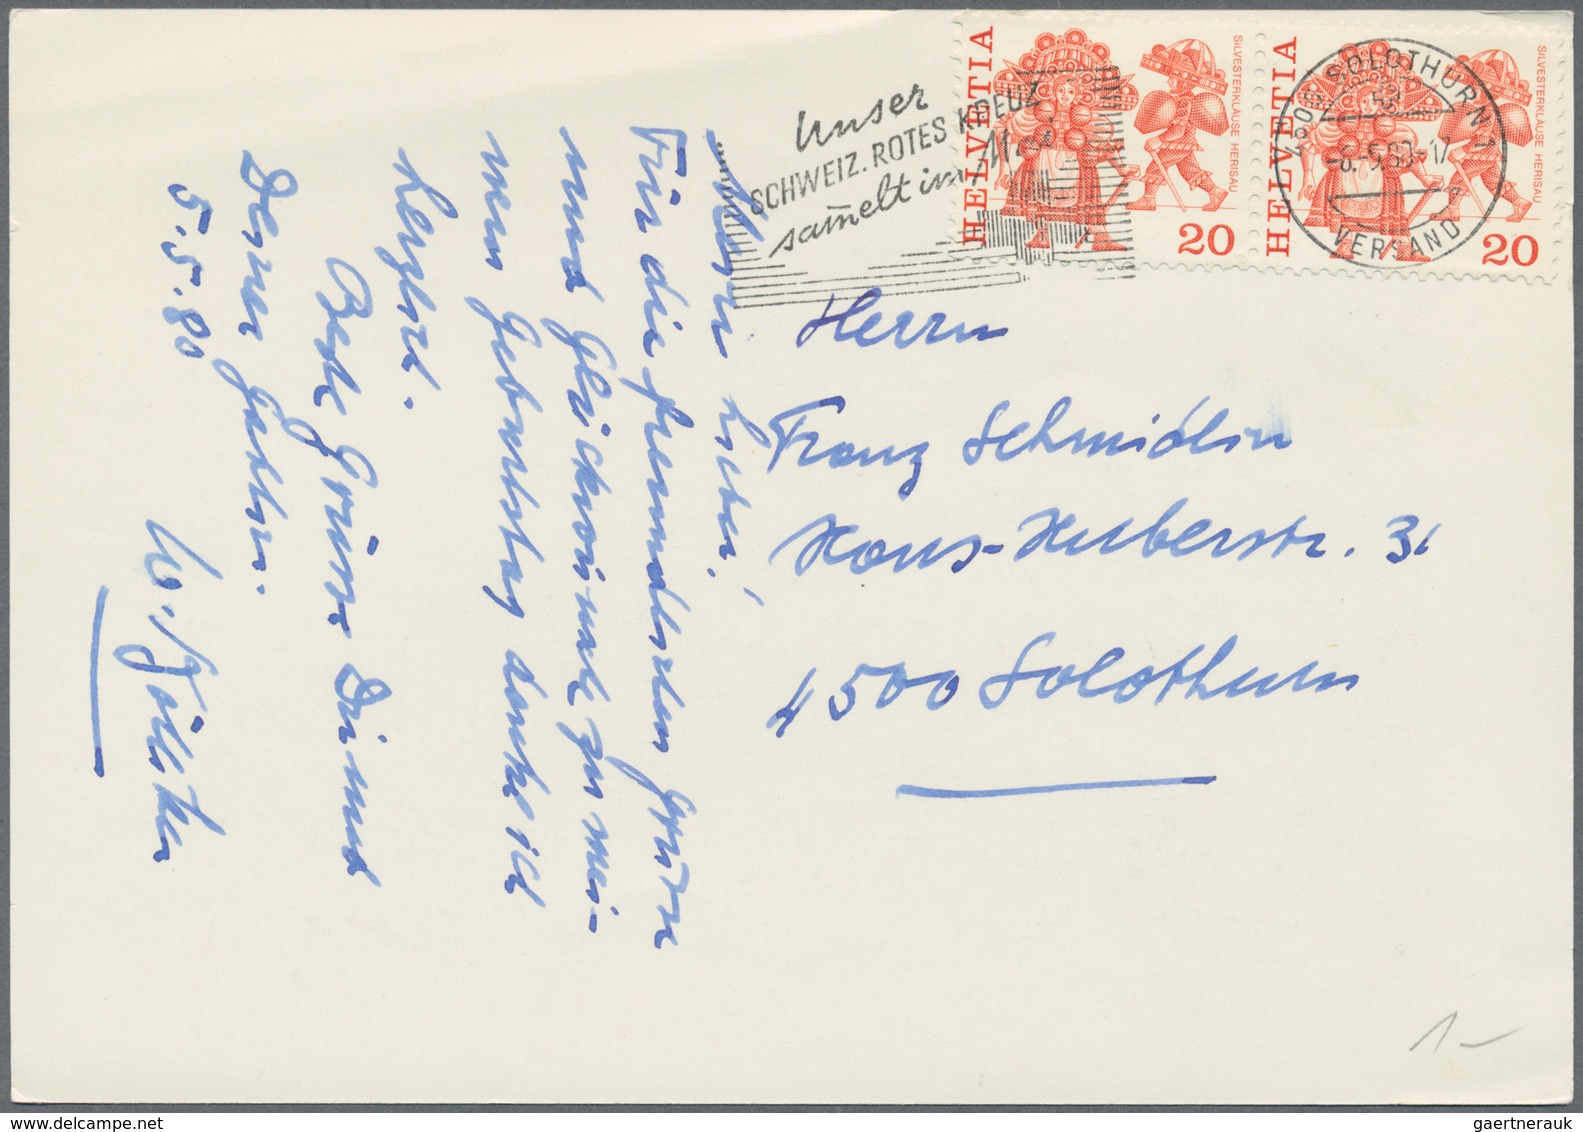 Unser
SCHWEIZ. ROTES KREUZ
sam̄elt im Mai
HELVETIA
SILVESTERKLÄUSE HERISAU
20
HELVETIA
SILVESTERKLÄUSE HERISAU
20
4500 SOLOTHURN 1
-6.-5.80-17
VERSAND
Herrn
Franz Schmidlin
Hans-Huberstr. 31
4500 Solothurn
Mein Lieber!
Für die freundlichen Grüsse
und Glückwünsche zu mei-
nem Geburtstag danke ich
herzlich.
Beste Grüsse Dir und
Deiner Gattin.
5.5.80
1-
gaertnerauk